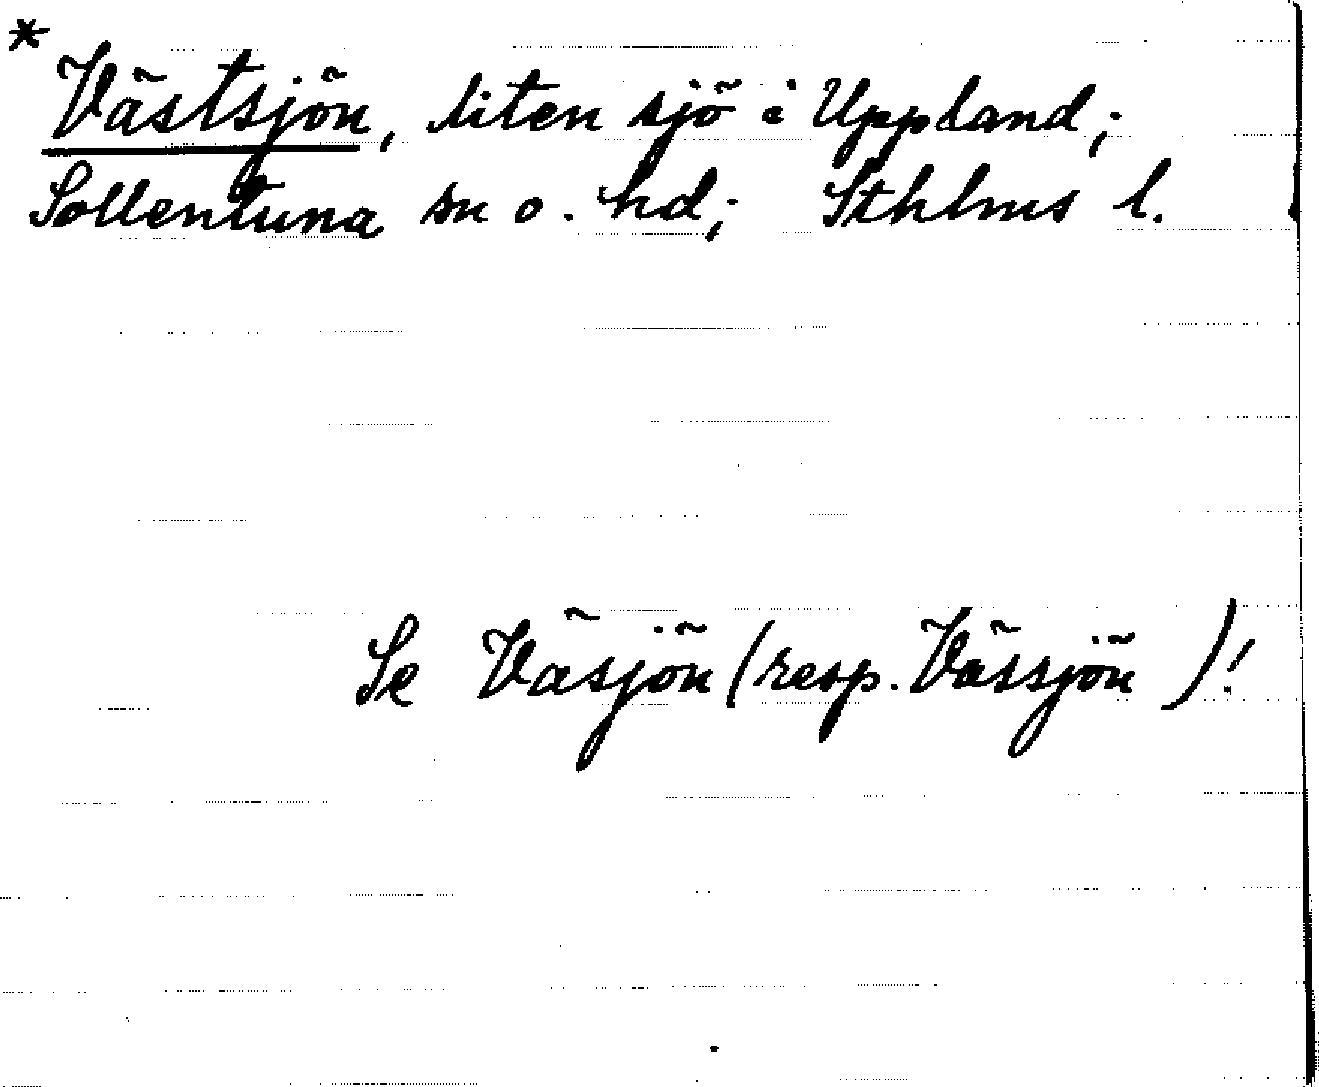 * Västsjön, liten sjö i Uppland;
Sollentuna sn o. hd; Sthlms l.
Se Väsjön (resp. Vässjön )!